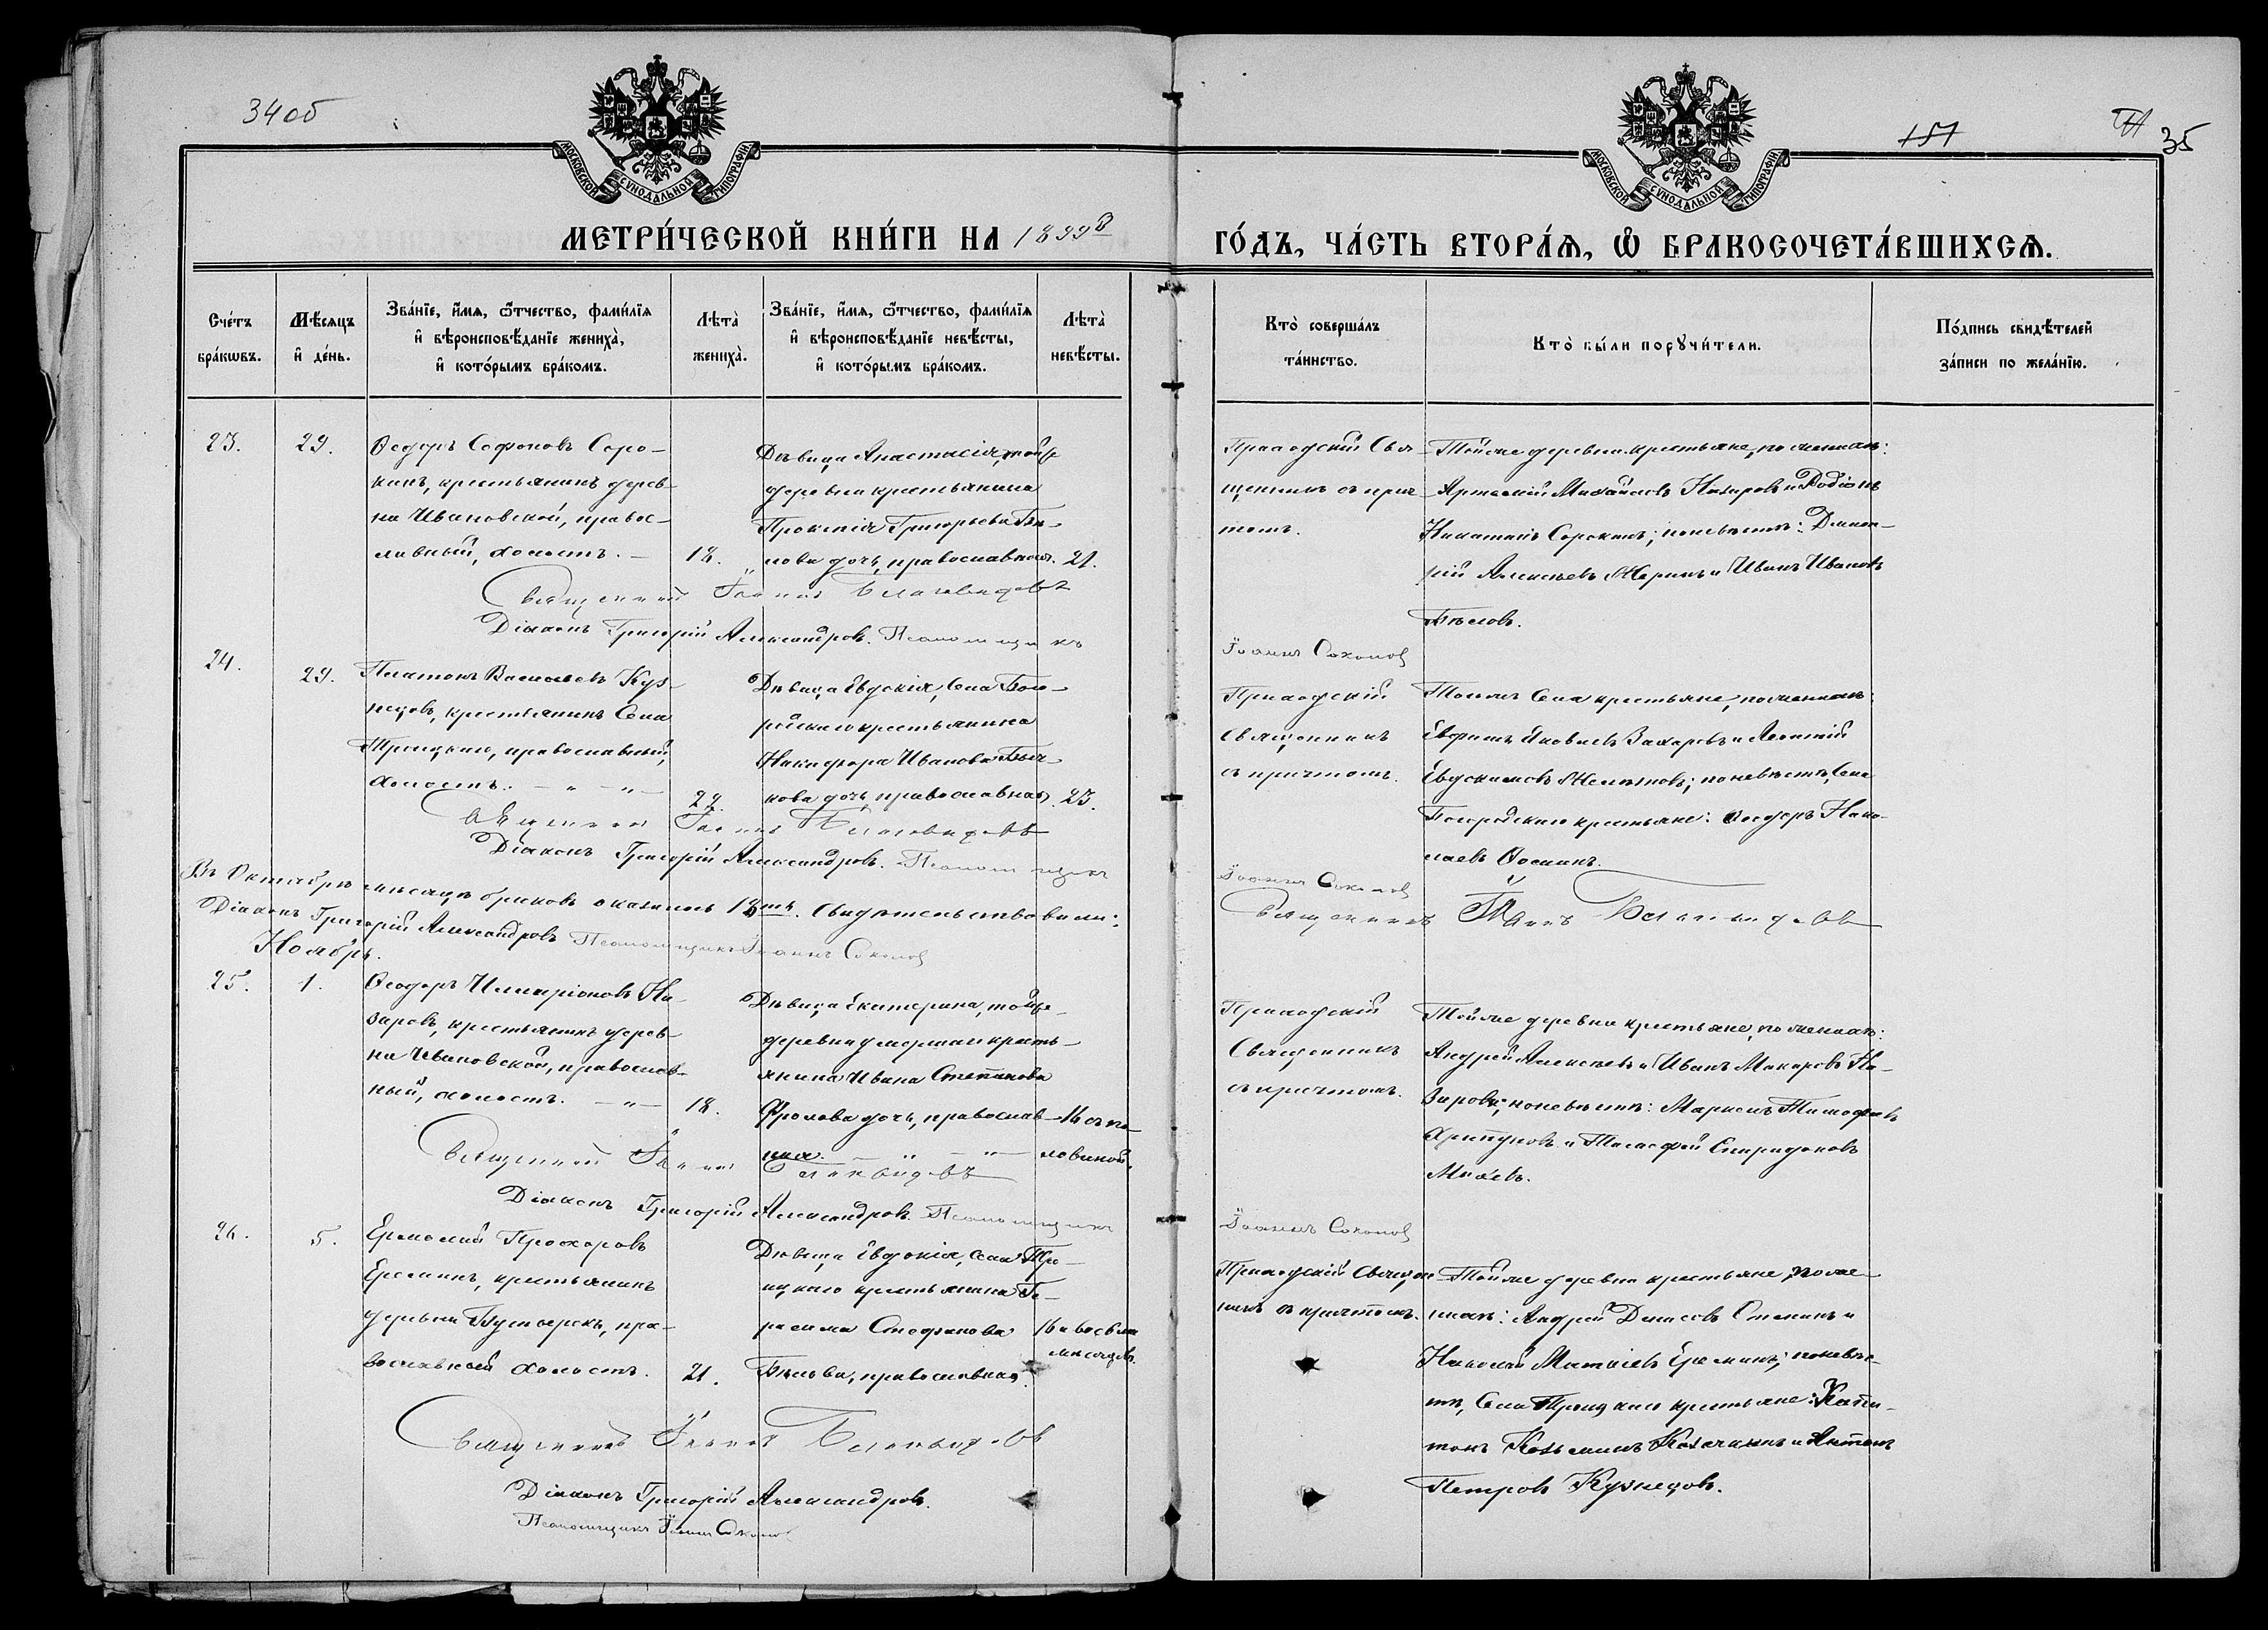 34 об
151
35
МОСКОВСКОЙ СѴНОДАЛЬНОЙ ТИПОГРАФІИ
МОСКОВСКОЙ СѴНОДАЛЬНОЙ ТИПОГРАФІИ
МЕТРИ́ЧЕСКОЙ КНИ́ГИ НА 1899й
ГО́ДЪ, ЧА́СТЬ ВТОРА́Ѧ, Ѡ҆ БРАКОСОЧЕТА́ВШИХСѦ.
Сче́тъ
бра́кѡвъ.
Мѣ́сяцъ
и҆ де́нь.
Зва́нїе, и҆́мѧ, ѻ҆́тчество, фами́лїѧ
и҆ вѣроисповѣ́данїе жениха̀,
и҆ кото́рымъ бра́комъ.
Лѣта̀
жениха̀.
Зва́нїе, и҆́мѧ, ѻ҆́тчество, фами́лїѧ
и҆ вѣроисповѣ́данїе невѣ́сты,
и҆ кото́рымъ бра́комъ.
Лѣта̀
невѣ́сты.
Кто̀ соверша́лъ
та́инство.
Кто̀ бы́ли порꙋчи́тели.
По́дпись свидѣ́телей
за́писи по жела́нїю.
23.
29.
Ѳедоръ Софоновъ Соро-
кинъ, крестьянинъ дерев-
ни Ивановской, правос-
лавный, холостъ. —
18.
Дѣвица Анастасія, той же
деревни крестьянина
Прокопія Григорьева Бѣ-
лова дочь, православная.
21.
Приходскій Свя-
щенникъ съ прич-
томъ.
Той же деревни крестьяне, по женихѣ:
Артемій Михайловъ Назаровъ и Родіонъ
Сорокинъ; по невѣстѣ: Димит-
рій Алексѣевъ и Иванъ Ивановъ
Бѣловъ.
Священникъ Іоаннъ Беловидовъ
Діаконъ Григорій Александровъ. Псаломщикъ
Іоаннъ Соколовъ
24.
29.
Платонъ Васильевъ Куз-
нецовъ, крестьянинъ Села
Троицкаго, православный,
холостъ. — " — " —
22.
Дѣвица Евдокія, Села Бого-
родскаго крестьянина
Никифора Иванова Быч-
кова дочь, православная
23.
Приходскій
Священникъ
съ причтомъ.
Того же Села крестьяне, по женихѣ:
Ефимъ Яковлевъ Захаровъ и Леонтій
Евдокимовъ; по невѣстѣ, Села
Богородскаго крестьяне: Ѳеодоръ Нико-
лаевъ Ѳоминъ.
Священникъ Іоаннъ Беловидовъ
Діаконъ Григорій Александровъ. Псаломщикъ
Іоаннъ Соколовъ
Въ Октябрѣ мѣсяцѣ браковъ оказалось 13ть. Свидѣтельствовали:
Священникъ Іоаннъ Беловидовъ
Діаконъ Григорій Александровъ Псаломщикъ Іоаннъ Соколовъ
Ноябрь.
25.
1.
Ѳеодоръ Иларіоновъ На-
заровъ, крестьянинъ дерев-
ни Ивановской, православ-
ный, холостъ. — " —
18.
Дѣвица Екатерина, той же
деревни умершаго кресть-
янина Ивана Степанова
Фролова дочь, православ-
ная. — " — " —
16 съ по-
ловиной.
Приходскій
Священникъ
съ причтомъ.
Той же деревни крестьяне, по женихѣ:
Андрей Алексѣевъ и Иванъ Макаровъ На-
заровы; по невѣстѣ: Тимофеевъ
Хрипуновъ и Спиридоновъ
Михѣевъ.
Священникъ Іоаннъ Беловидовъ
Діаконъ Григорій Александровъ. Псаломщикъ
Іоаннъ Соколовъ
26.
5.
Ермолай Прохоровъ
Ереминъ, крестьянинъ
деревни, пра-
вославный холостъ.
21.
Дѣвица Евдокія, Села Тро-
ицкаго крестьянина Ге-
расима Стефанова
Бѣлова, православная.
16 и восемь
мѣсяцевъ.
Приходскій Священ-
никъ съ причтомъ.
Той же деревни крестьяне, по же-
нихѣ: Андрей Денисовъ и
Николай Матвіевъ Ереминъ; по невѣс-
тѣ, Села Троицкаго крестьяне: Капи-
тонъ Козьминъ и Антонъ
Петровъ Кузнецовъ.
Священникъ Іоаннъ Беловидовъ
Діаконъ Григорій Александровъ.
Псаломщикъ Іоаннъ Соколовъ